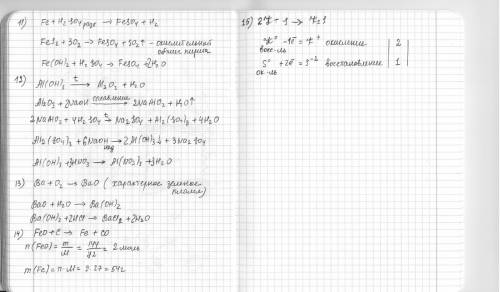 11) Fe + H2SO4 разб → FeSO4 + H2
FeS2 + 3O2 → FeSO4 + SO2↑ - окислительный
обжиг пирита
Fe(OH)2 + H2SO4 → FeSO4 + 2H2O
12) Al(OH)3 t→ Al2O3 + H2O
Al2O3 + 2NaOH сплавление→ 2NaAlO2 + H2O↑
2NaAlO2 + 4H2SO4 t→ Na2SO4 + Al2(SO4)3 + 4H2O
Al2(SO4)3 + 6NaOH → 2Al(OH)3↓ + 3Na2SO4
Al(OH)3 + 3HNO3 → Al(NO3)3 + 3H2O
13) Ba + O2 → BaO (характерное зеленое
пламя)
BaO + H2O → Ba(OH)2
Ba(OH)2 + 2HCl → BaCl2 + 2H2O
14) FeO + C → Fe + CO
n(FeO) = m/M = 144/72 = 2 моль
m(Fe) = n·M = 2·27 = 54г
15)
-1e = окисление 2
вос-ль
S0 + 2e = S-2 восстановление 1
ок-ль